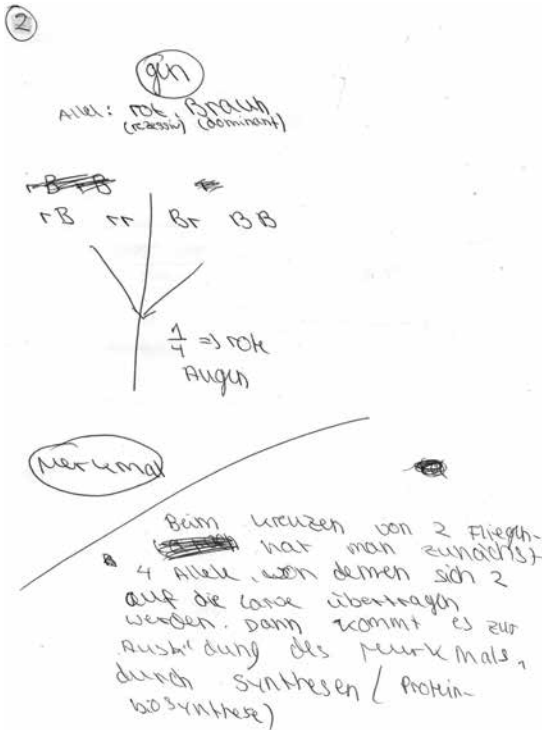 2
gen
Allel: rot, Braun
(rezessiv) (dominant)
rB rr Br BB
1/4 => rote
Augen
Merkmal
Beim kreuzen von 2 Fliegen
hat man zunächst
4 Allele, von denen sich 2
auf die Larve übertragen
werden. Dann kommt es zur
Ausbildung des Merkmals,
durch Synthesen (Protein-
biosynthese)